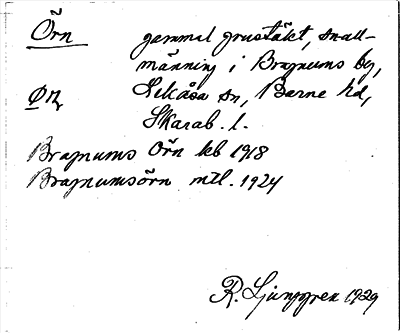 Örn
gammal grustäkt, små-
männing i Bragnums by,
Lekåsa sn, Barne hd,
Skarab. l.
Bragnums Örn kb 1918
Bragnumsörn mtl. 1924
R. Ljunggren 1929